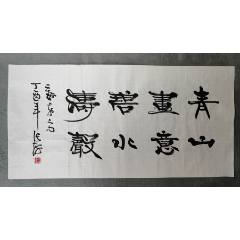 青山
畫意
碧水
濤聲
丁酉年